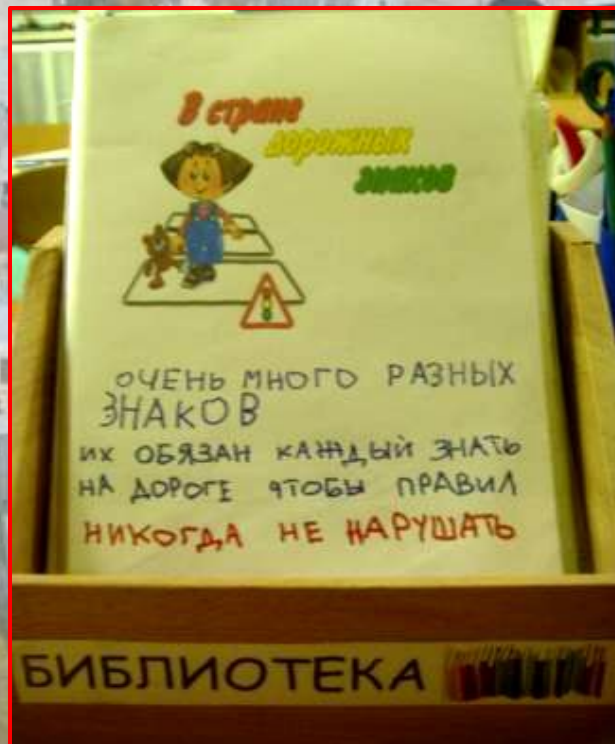 В стране
дорожных
знаков
ОЧЕНЬ МНОГО РАЗНЫХ
ЗНАКОВ
ИХ ОБЯЗАН КАЖДЫЙ ЗНАТЬ
НА ДОРОГЕ ЧТОБЫ ПРАВИЛ
НИКОГДА НЕ НАРУШАТЬ
БИБЛИОТЕКА